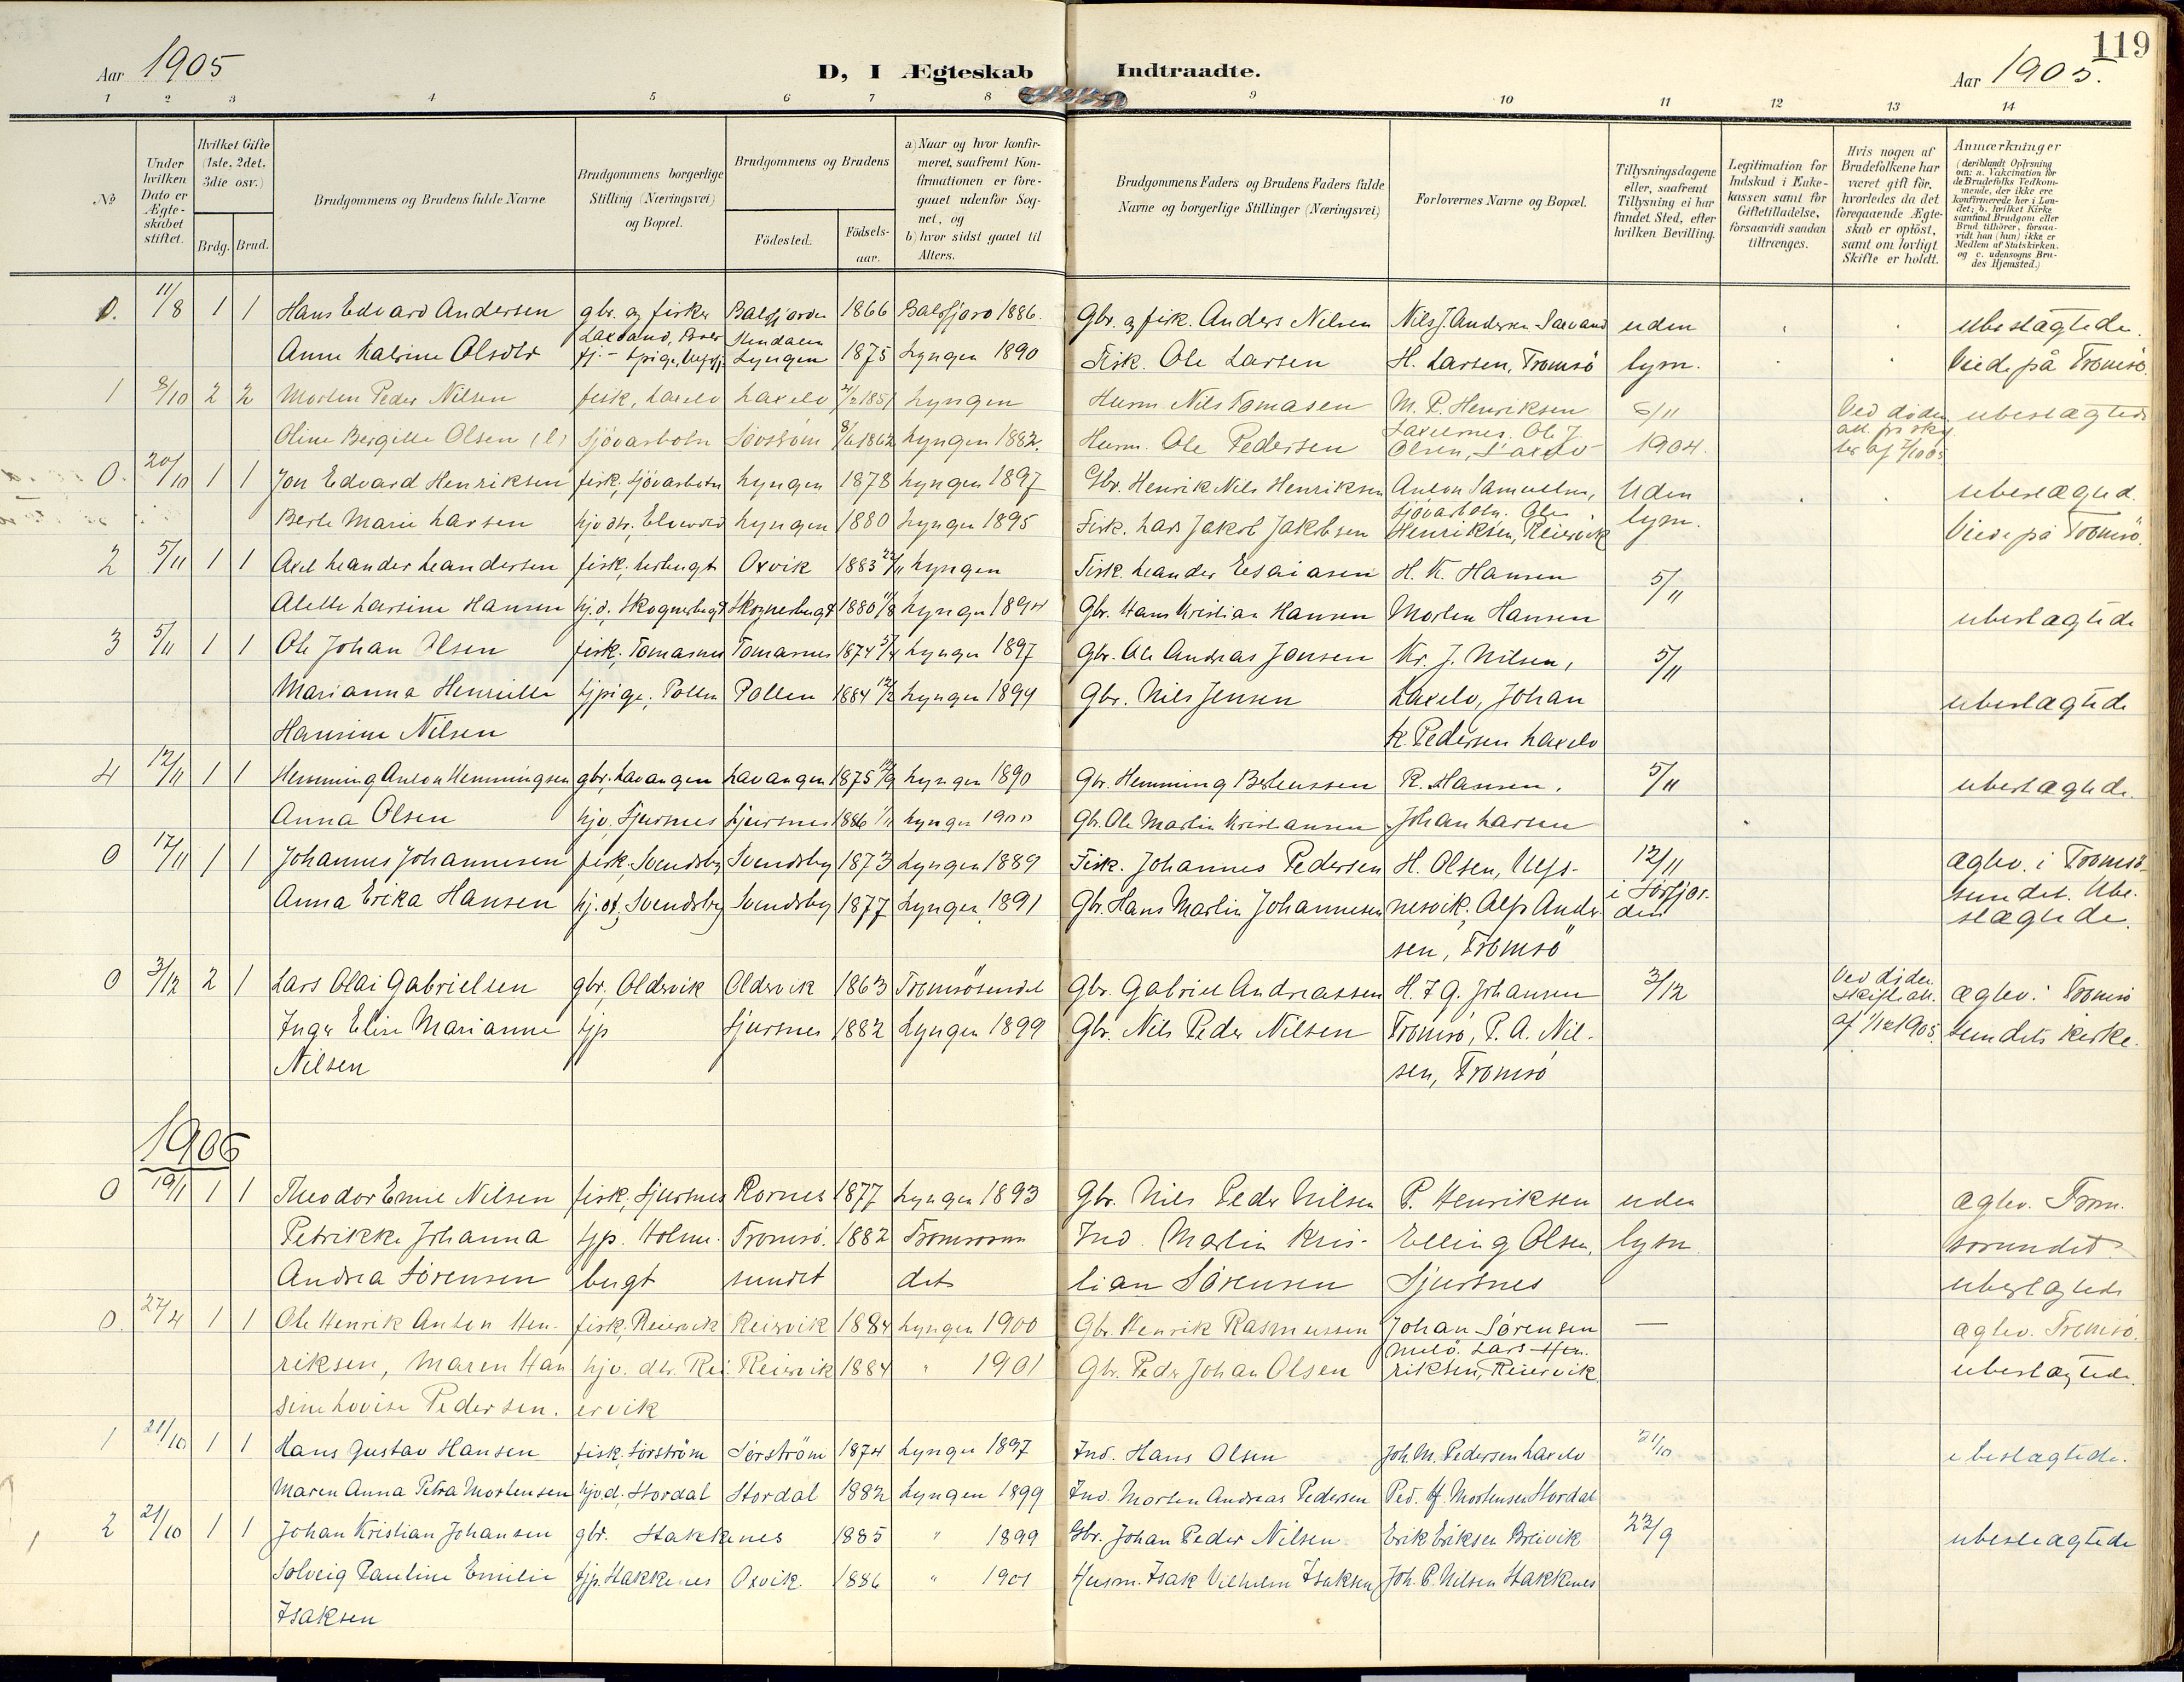 119
Aar 1905
D, I Ægteskab Indtraadte.
Aar 1905.
1 2 3 4 5 6 7 8 9 10 11 12 13 14
No
Under hvilken Dato er Ægteskabet stiftet.
Hvilket Gifte (1ste, 2det, 3die osv.)
Brdg. Brud.
Brudgommens og Brudens fulde Navne
Brudgommens borgerlige Stilling (Næringsvei) og Bopæl.
Brudgommens og Brudens
Födested.
Födsels-aar.
a) Naar og hvor konfirmeret, saafremt Konfirmationen er foregaaet udenfor Sognet, og
b) hvor sidst gaaet til Alters.
Brudgommens Faders og Brudens Faders fulde Navne og borgerlige Stillinger (Næringsvei)
Forlovernes Navne og Bopæl.
Tillysningsdagene eller, saafremt Tillysning ei har fundet Sted, efter hvilken Bevilling.
Legitimation for Indskud i Enkekassen samt for Giftetilladelse, forsaavidt saadan tiltrænges.
Hvis nogen af Brudefolkene har været gift för, hvorledes da det foregaaende Ægteskab er oplöst, samt om lovligt Skifte er holdt.
Anmærkninger (deriblandt Oplysning om: a. Vakcination for de Brudefolks Vedkommende, der ikke ere konfirmerede her i Landet; b. hvilket Kirkesamfund Brudgom eller Brud tilhörer, forsaavidt han (hun) ikke er Medlem af Statskirken. og c. udensogns Brudes Hjemsted.)
0. 11/8 1 1 Hans Edvard Andersen gbr. og fisker Balsfjorden 1866 Balsfjord 1886. Gbr. og fisk. Anders Nilsen Nils J. Andersen uden ubeslægtede.
Anne Katrine Olsdtr Lyngen 1875 Lyngen 1890 Fisk. Ole Larsen H. Larsen, Tromsö lysn. Viede på Tromsö.
1 8/10 2 2 Morten Peder Nilsen fisk, Laxelv Laxelv 1851 Lyngen Husm. Nils Tomasen M. P. Henriksen 6/11 Ved döden ubeslægtede
Oline Bergitte Olsen Sjövarbotn 1862 Lyngen 1882. Husm. Ole Pedersen Laxelvnes, Ole J. Olsen, Laxelv 1904.
0. 20/10 1 1 Jon Edvard Henriksen fisk, Sjövarbotn Lyngen 1878 Lyngen 1897 Gbr. Henrik Nils Henriksen Anton Samuelsen, Uden ubeslægted.
Berte Marie Larsen Lyngen 1880 Lyngen 1895 Fisk. Lars Jakob Jakobsen Sjövarbotn. Ole Henriksen, Reiervik lysn. Viede på Tromsö.
2 5/11 1 1 Axel Leander Leandersen fisk, Oxvik 1883 Lyngen Fisk. Leander Esaiasen H. K. Hansen 5/11
Alette Larsine Hansen hj.d. Skognesbugt Skognesbugt 1880 Lyngen 1894 Gbr. Hans Kristian Hansen Morten Hansen ubeslægtede
3 5/11 1 1 Ole Johan Olsen fisk. Tomasnes Tomasnes 1874 Lyngen 1897 Gbr. Ole Andreas Jonsen Kr. J. Nilsen, 5/11
Marianna Henriette tjpige, Pollen Pollen 1884 12/2 Lyngen 1899 Gbr. Nils Jensen Laxelv, Johan ubeslægtede
Hansine Nilsen K. Pedersen Laxelv
4 12/11 1 1 Hemming Anton Hemmingsen gbr. Lavangen Lavangen 1875 Lyngen 1890 Gbr. Hemming Berteussen R. Hansen. 5/11 ubeslægtede.
Anna Olsen hjv. Sjursnes Sjursnes 1886 Lyngen 1900 Gbr. Ole Martin Kristiansen Johan Larsen
0 17/11 1 1 Johannes Johannesen fisk. Svendsby Svendsby 1873 Lyngen 1889 Fisk. Johannes Pedersen H. Olsen, Ulfs- 12/11 ægtev. i Tromsö-
Anna Erika Hansen hj.dt, Svendsby Svendsby 1877 Lyngen 1891 Gbr. Hans Martin Johannesen nesvik, Alf Ander- i Sörfjorden sundet. Ube-
sen, Tromsö slægtede.
0 3/12 2 1 Lars Olai Gabrielsen gbr, Oldervik Oldervik 1863 Tromsösundet Gbr. Gabriel Andreassen H. F G. Johansen 3/12 Ved döden skifteatt. ægtev. i Tromsö
Inger Elise Marianne tjp Sjursnes 1882 Lyngen 1899 Gbr. Nils Peder Nilsen Tromsö, P. A. Nil- af 1/12 1905. sundets kirke.
Nilsen sen, Tromsö
1906
0 19/1 1 1 Theodor Emil Nilsen fisk, Sjursnes Kornes 1877 Lyngen 1893 Gbr. Nils Peder Nilsen P. Henriksen uden ægtev. Trom-
Petrikke Johanna tjp. Holme- Tromsö- 1882 Tromsösun Ind. Martin Kris- Elling Olsen, lysn. sösundet
Andrea Sörensen bugt sundet det tian Sörensen Sjursnes ubeslægtede
0. 27/4 1 1 Ole Henrik Anton Hen- fisk, Reiervik Reiervik 1884 Lyngen 1900 Gbr. Henrik Rasmussen Johan Sörensen — ægtev. Tromsö.
riksen, Maren Han hjv. dtr. Rei- Reiervik 1884 " 1901 Gbr. Peder Johan Olsen Lars Hen- riksen, Reiervik ubeslægtede.
sine Lovise Pedersen. ervik
1 21/10 1 1 Hans Gustav Hansen fisk, Sörström Sörström 1874 Lyngen 1897 Ind. Hans Olsen Joh. M. Pedersen Laxelv 21/10 ubeslægtede.
Maren Anna Petra Mortensen hjv.d, Stordal Stordal 1882 Lyngen 1899 Ind. Morten Andreas Pedersen Ped. H. Mortensen Stordal
2 21/10 1 1 Johan Kristian Johansen gbr. Stakkenes 1885 " 1899 Gbr. Johan Peder Nilsen Erik Eriksen Breivik 23/9 ubeslægtede
Solveig Pauline Emilie tjp. Stakkenes Oxvik. 1886 " 1901 Husm. Isak Vilhelm Isaksen Joh. P. Nilsen Stakkenes
Isaksen